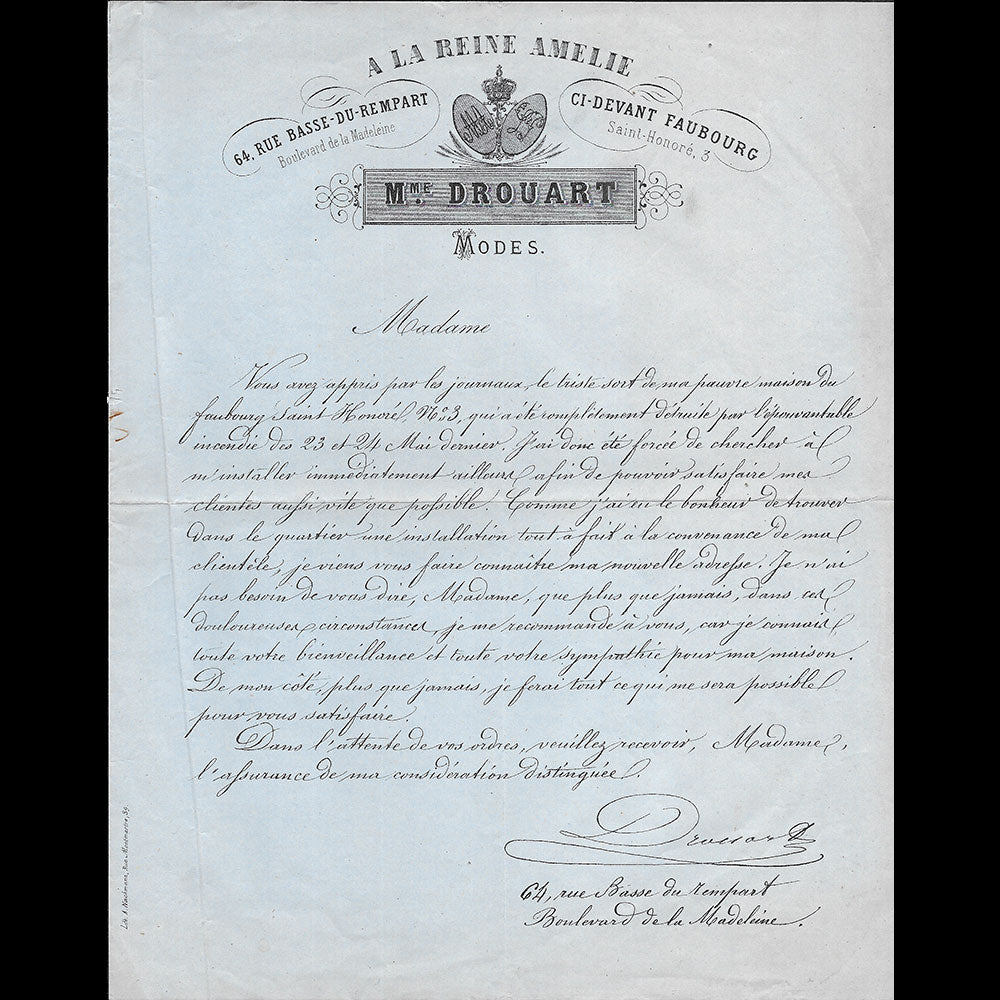 A LA REINE AMELIE
64, RUE BASSE-DU-REMPART
Boulevard de la Madeleine
CI-DEVANT FAUBOURG
Saint-Honoré, 3
MME. DROUART
MODES.
Madame
Vous avez appris par les journaux, le triste sort de ma pauvre maison du
faubourg Saint Honoré, No. 3, qui a été complètement détruite par l'épouvantable
incendie des 23 et 24 Mai dernier. J'ai donc été forcée de chercher à
m'installer immédiatement ailleurs afin de pouvoir satisfaire mes
clientes aussi vite que possible. Comme j'ai eu le bonheur de trouver
dans le quartier une installation tout à fait à la convenance de ma
clientèle, je viens vous faire connaître ma nouvelle adresse. Je n'ai
pas besoin de vous dire, Madame, que plus que jamais, dans ces
douloureuses circonstances, je me recommande à vous, car je connais
toute votre bienveillance et toute votre sympathie pour ma maison.
De mon côté, plus que jamais, je ferai tout ce qui me sera possible
pour vous satisfaire.
Dans l'attente de vos ordres, veuillez recevoir, Madame,
l'assurance de ma considération distinguée.
Drouart
64, rue Basse du rempart
Boulevard de la Madeleine.
Lith. Rue Montmartre, 39.